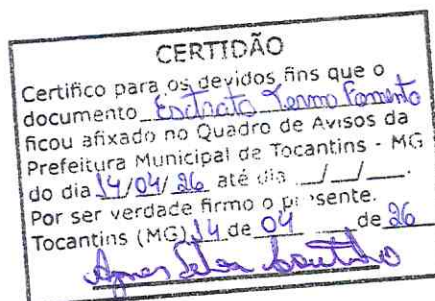 CERTIDÃO
Certifico para os devidos fins que o
documento Extrato Termo Fomento
ficou afixado no Quadro de Avisos da
Prefeitura Municipal de Tocantins - MG
do dia 14/04/26 até dia __/__/__.
Por ser verdade firmo o presente.
Tocantins (MG) 14 de 04 de 26